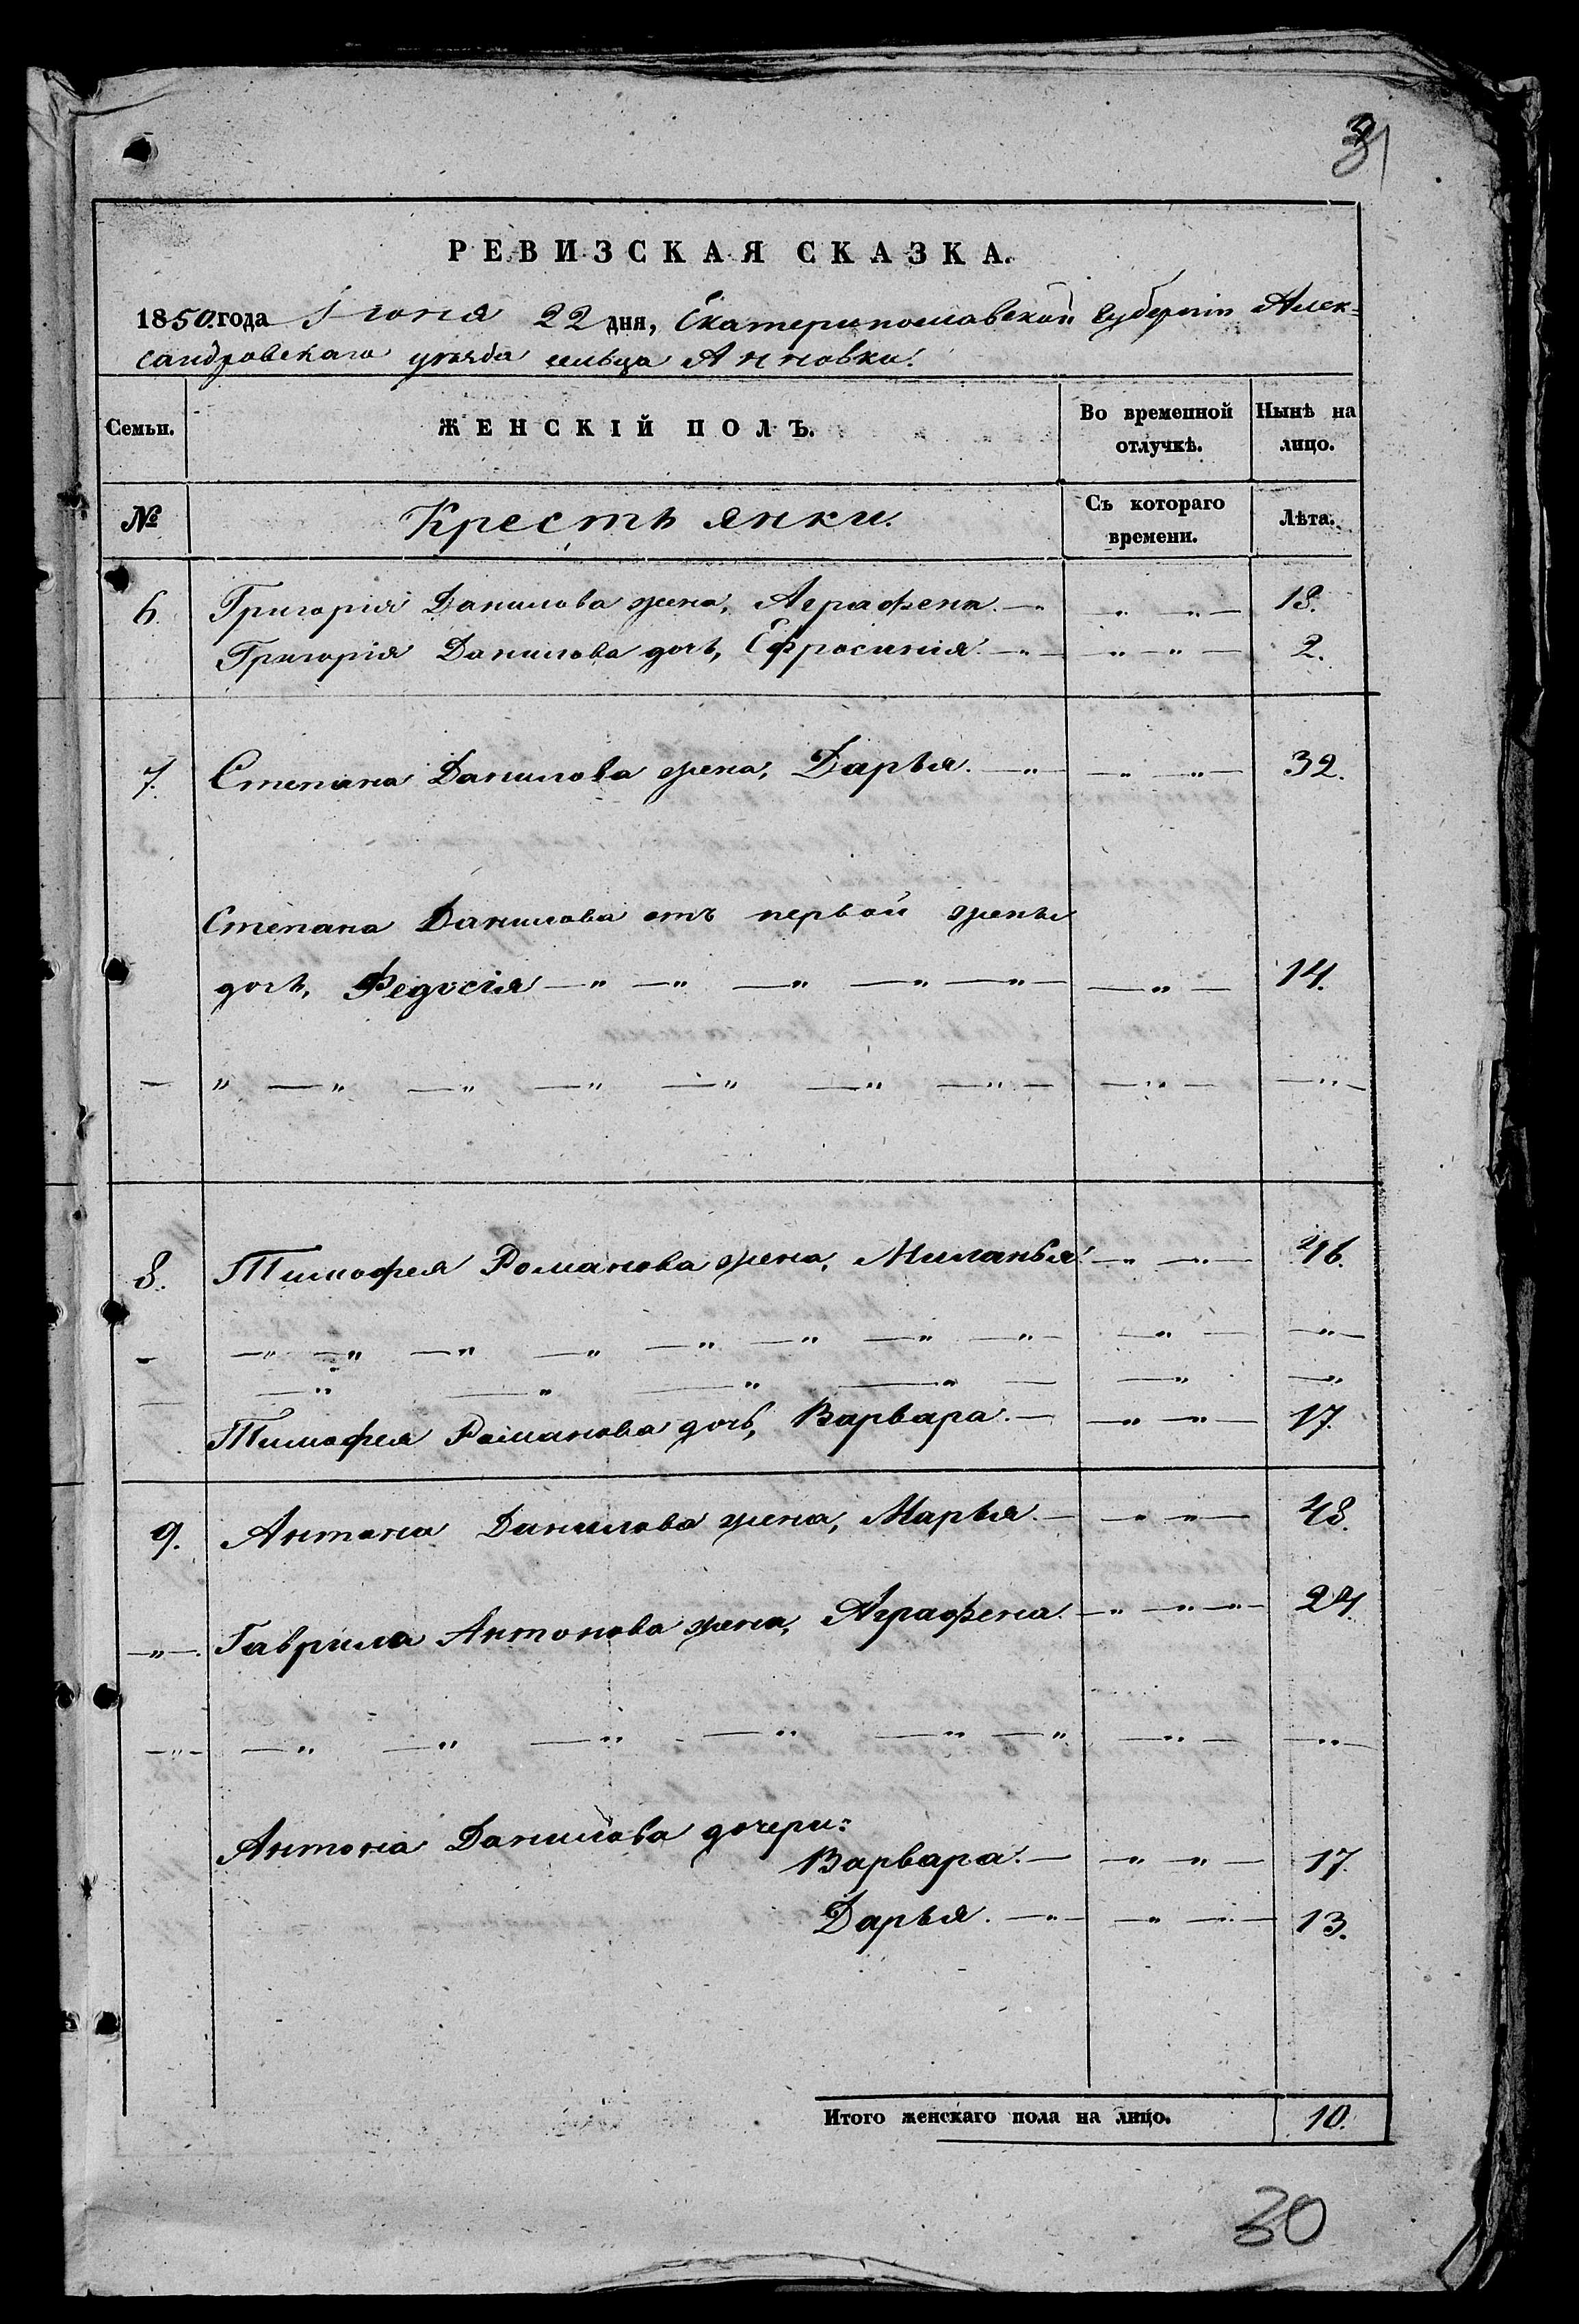 31
РЕВИЗСКАЯ СКАЗКА.
1850. года Іюня 22 дня, Екатеринославской Губерніи Алек-
сандровскаго уѣзда сельца Анновки.
Семьи.
ЖЕНСКІЙ ПОЛЪ.
Во временной отлучкѣ.
Нынѣ на лицо.
№
Крестьянки.
Съ котораго времени.
Лѣта.
6. Григорія Данилова жена, Аграфена. — „ — „ — 18.
Григорія Данилова дочь, Ефросинія. — „ — „ — „ — 2.
7. Степана Данилова жена, Дарья. — „ — „ — „ — 32.
Степана Данилова отъ первой жены
дочь, Федосія — „ — „ — „ — „ — „ — „ — 14.
— „ — „ — „ — „ — „ — „ — „ — „ — „ —
8. Тимофея Романова жена, Миланья. — „ — „ — 46.
— — „ — „ — „ — „ — „ — „ — „ — „ — „ — „ —
— — „ — „ — „ — „ — „ — „
Тимофея Романова дочь, Варвара. — „ — „ — 17.
9. Антона Данилова жена, Марья. — „ — „ — 48.
— „ — Гаврила Антонова жена, Аграфена. — „ — „ — „ — 24.
— „ — — „ — „ — „ — „ — „ — „ — „ — „ —
Антона Данилова дочери:
Варвара. — „ — „ — 17.
Дарья. — „ — „ — „ — 13.
Итого женскаго пола на лицо. 10.
30